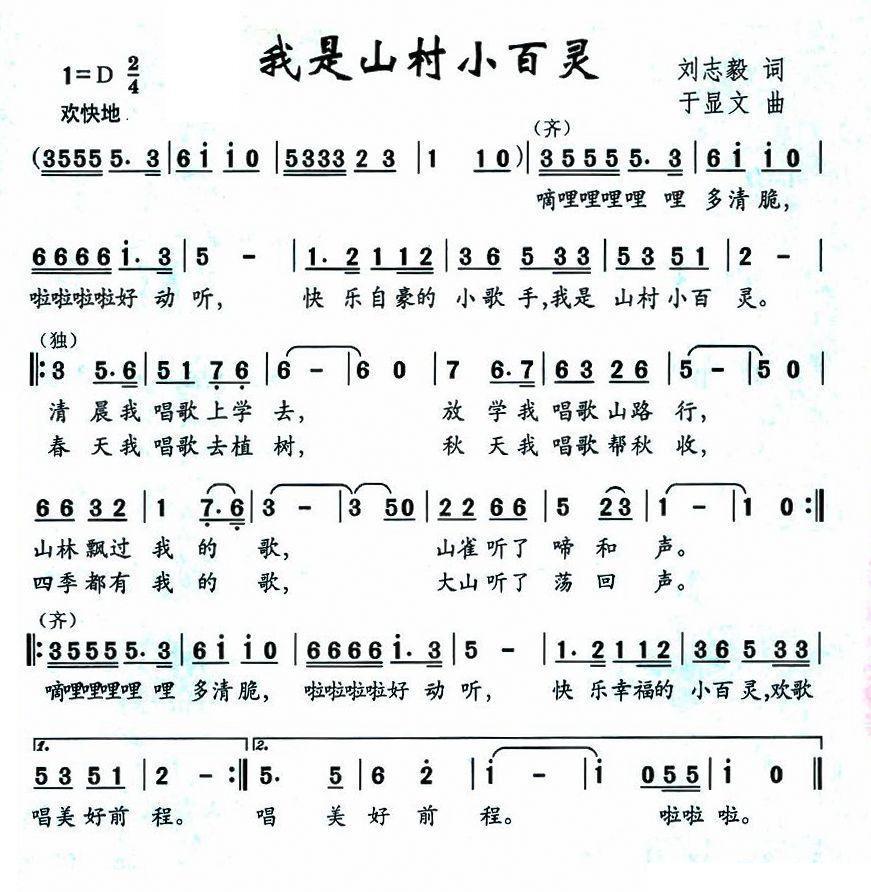 我是山村小百灵
1=D 2/4
刘志毅 词
欢快地
于显文 曲
(齐)
(3555 5. 3|6i i0|5333 2 3|1 10)|35555. 3|6i i0|
嘀哩哩哩哩 哩 多清脆,
6666 i. 3|5 -|1. 2 1 12|3 6 5 33|53 51|2 -|
啦啦啦啦好 动 听, 快 乐自豪的 小 歌 手,我是 山村小百 灵。
(独)
‖:3 5.6|51 7 6|6 -|6 0|7 6.7|63 26|5 -|50|
清 晨我 唱歌上学 去, 放 学我 唱歌山路 行,
春 天我 唱歌去植 树, 秋 天我 唱歌帮秋 收,
66 32|1 7.6|3 -|3 50|22 66|5 23|1 -|1 0:‖
山林飘过 我 的 歌, 山雀听了 啼 和 声。
四季都有 我 的 歌, 大山听了 荡 回 声。
(齐)
‖:35555. 3|6i i0|6666 i. 3|5 -|1. 2 1 12|36 5 33|
嘀哩哩哩哩 哩 多清脆, 啦啦啦啦好 动 听, 快 乐幸福的 小百 灵,欢歌
1. 2.
53 51|2 -:‖5. 5|6 2|i -|i 055|i 0‖
唱美好前 程。 唱 美 好 前 程。 啦啦 啦。